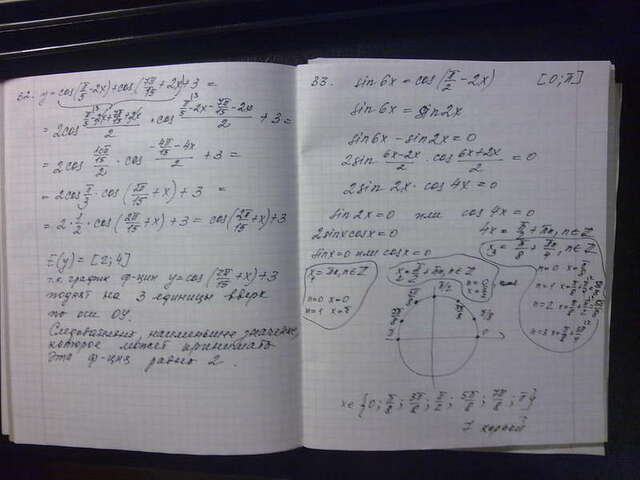 32. y = cos(π/5 - 2x) + cos(7π/15 + 2x) + 3 =
= 2cos (π/5 - 2x + 7π/15 + 2x)/2 · cos (π/5 - 2x - 7π/15 - 2x)/2 + 3 =
= 2cos (10π/15)/2 · cos (-4π/15 - 4x)/2 + 3 =
= 2cos π/3 · cos(2π/15 + x) + 3 =
= 2 · 1/2 · cos(2π/15 + x) + 3 = cos(2π/15 + x) + 3
E(y) = [2; 4]
т.к. график ф-ции y = cos(2π/15 + x) + 3
поднят на 3 единицы вверх
по оси OY.
Следовательно, наименьшее значение,
которое может принимать
эта ф-ция равно 2.
33. sin6x = cos(π/2 - 2x) [0; π]
sin6x = sin2x
sin6x - sin2x = 0
2sin (6x-2x)/2 · cos (6x+2x)/2 = 0
2sin 2x · cos 4x = 0
sin2x = 0 или cos 4x = 0
2sinxcosx = 0 4x = π/2 + πn, n∈Z
sinx = 0 или cosx = 0 x = π/8 + πn/4, n∈Z
x = πn, n∈Z x = π/2 + πn, n∈Z
n=0 x=0
n=1 x=π
n=0
n=1
n=2
n=3
π/2
0
x∈{0; π/8; 3π/8; π/2; 5π/8; 7π/8; π}
7 корней